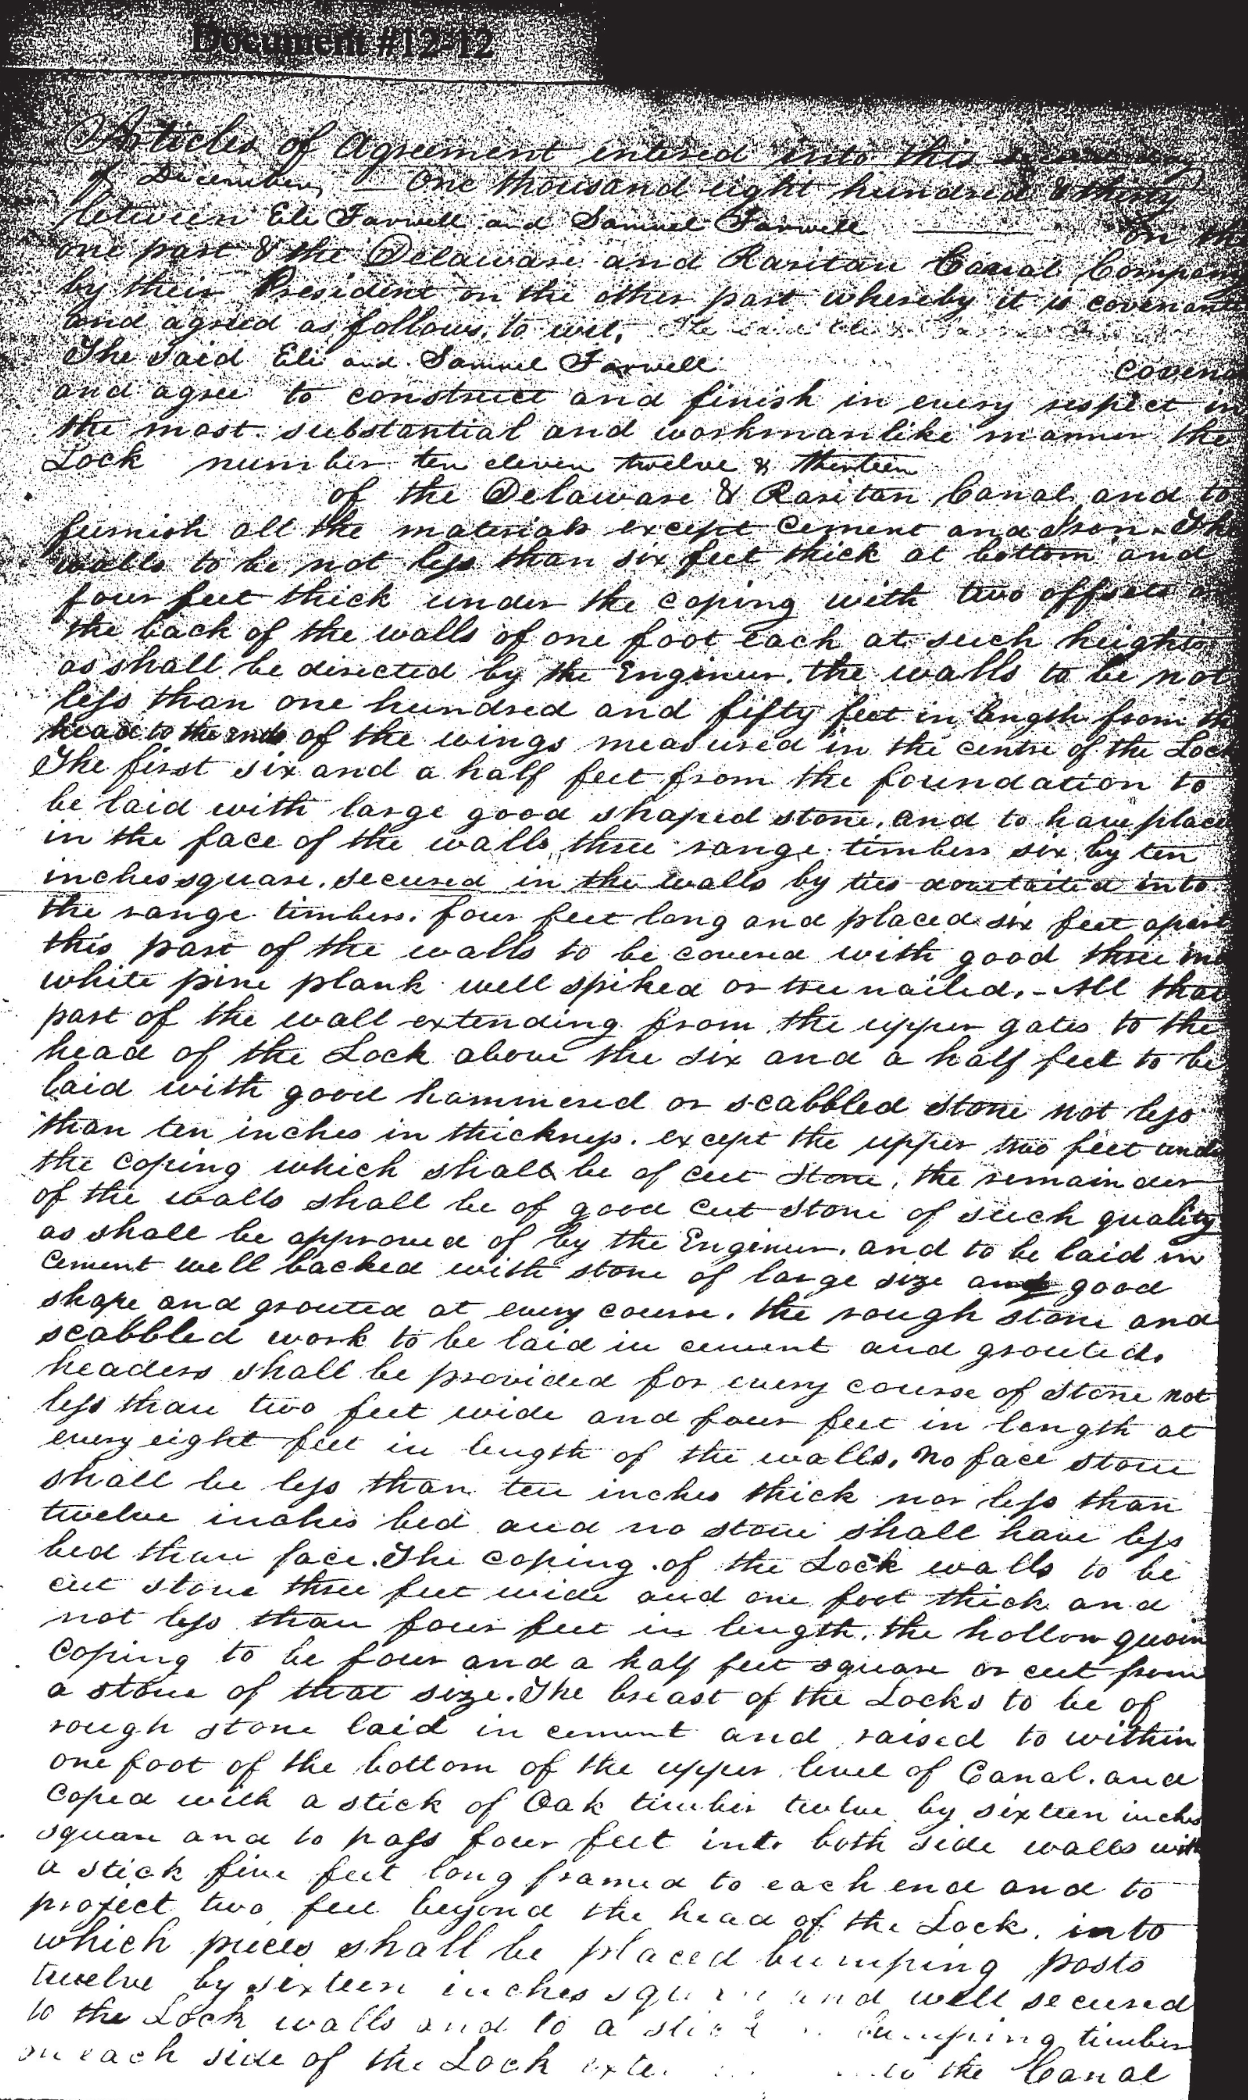 Document #12-12
Articles of Agreement entered into this
of December, One thousand eight hundred & thirty
between Eli Farwell and Samuel Farwell on the
one part & the Delaware and Raritan Canal Company
by their President on the other part whereby it is covenanted
and agreed as follows, to wit,
The said Eli and Samuel Farwell coven
and agree to construct and finish in every respect in
the most substantial and workmanlike manner the
Lock number ten eleven twelve & thirteen
of the Delaware & Raritan Canal and to
furnish all the materials except Cement and Iron. The
walls to be not less than six feet thick at bottom and
four feet thick under the coping with two offsets
the back of the walls of one foot each at such heights
as shall be directed by the Engineer. the walls to be not
less than one hundred and fifty feet in length from the
head to the ends of the wings measured in the centre of the Lock
The first six and a half feet from the foundation to
be laid with large good shaped stone, and to have place
in the face of the walls three range timbers six by ten
inches square. secured in the walls by ties dovetailed into
the range timbers. four feet long and placed six feet apart
this part of the walls to be covered with good three
white pine plank well spiked or treenailed. - All that
part of the wall extending from the upper gates to the
head of the Lock above the six and a half feet to be
laid with good hammered or scabbled stone not less
than ten inches in thickness. except the upper two feet unde
the coping which shall be of cut stone, the remainder
of the walls shall be of good cut stone of such quality
as shall be approved of by the Engineer. and to be laid in
cement well backed with stone of large size and good
shape and grouted at every course. the rough stone and
scabbled work to be laid in cement and grouted.
headers shall be provided for every course of stone not
less than two feet wide and four feet in length at
every eight feet in length of the walls. no face stone
shall be less than ten inches thick nor less than
twelve inches bed and no stone shall have less
bed than face. The coping of the Lock walls to be
cut stone three feet wide and one foot thick and
not less than four feet in length. the hollow quoin
coping to be four and a half feet square or cut from
a stone of that size. The breast of the Locks to be of
rough stone laid in cement and raised to within
one foot of the bottom of the upper level of Canal. and
coped with a stick of Oak timber twelve by sixteen inches
square and to pass four feet into both side walls with
a stick five feet long framed to each end and to
project two feet beyond the head of the Lock. into
which pieces shall be placed bumping posts
twelve by sixteen inches square and well secured
to the Lock walls and to a stick bumping timber
on each side of the Lock to the Canal